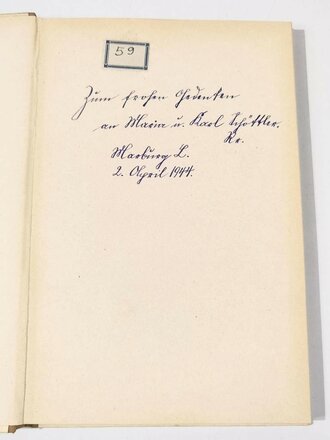 59
Zum frohen Gedenken
an Maria u. Karl Schöttler.
Marburg L.
2. April 1944.